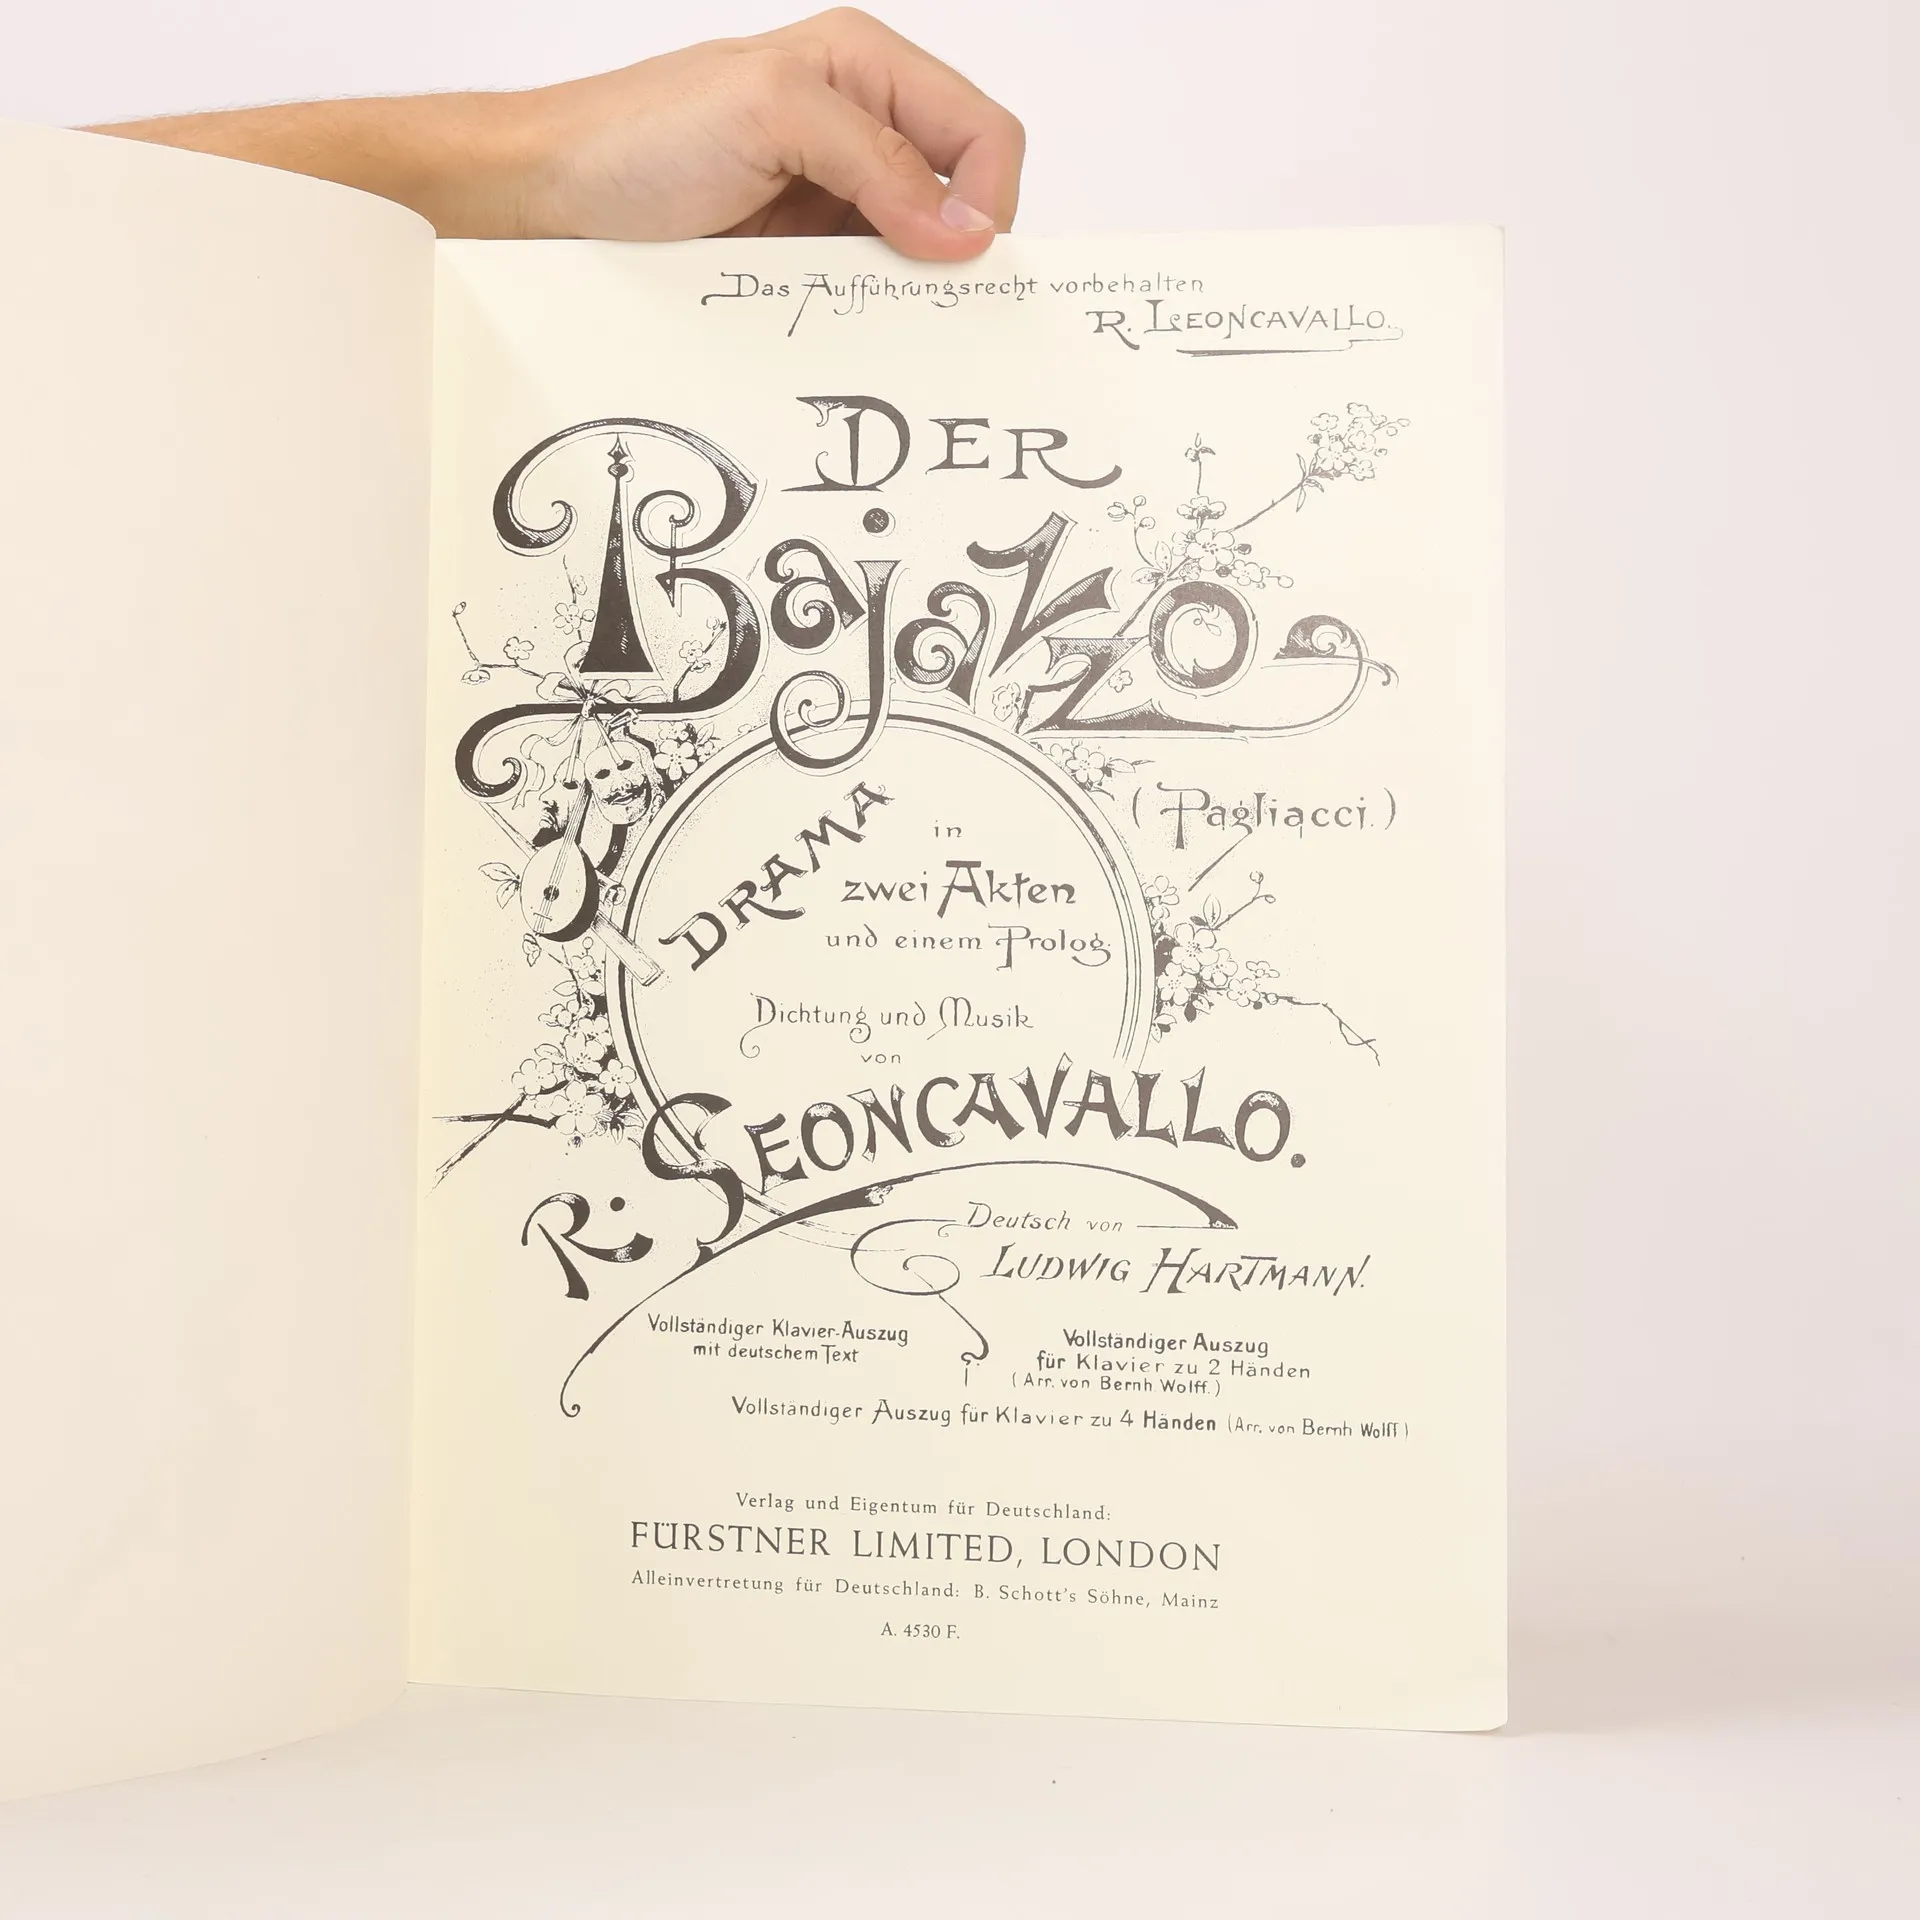 Das Aufführungsrecht vorbehalten
R. LEONCAVALLO.
DER
Bajazzo
(Pagliacci.)
DRAMA
in
zwei Akten
und einem Prolog.
Dichtung und Musik
von
R. LEONCAVALLO.
Deutsch von
LUDWIG HARTMANN.
Vollständiger Klavier-Auszug
mit deutschem Text
Vollständiger Auszug
für Klavier zu 2 Händen
(Arr. von Bernh. Wolff.)
Vollständiger Auszug für Klavier zu 4 Händen (Arr. von Bernh Wolff)
Verlag und Eigentum für Deutschland:
FÜRSTNER LIMITED, LONDON
Alleinvertretung für Deutschland: B. Schott's Söhne, Mainz
A. 4530 F.